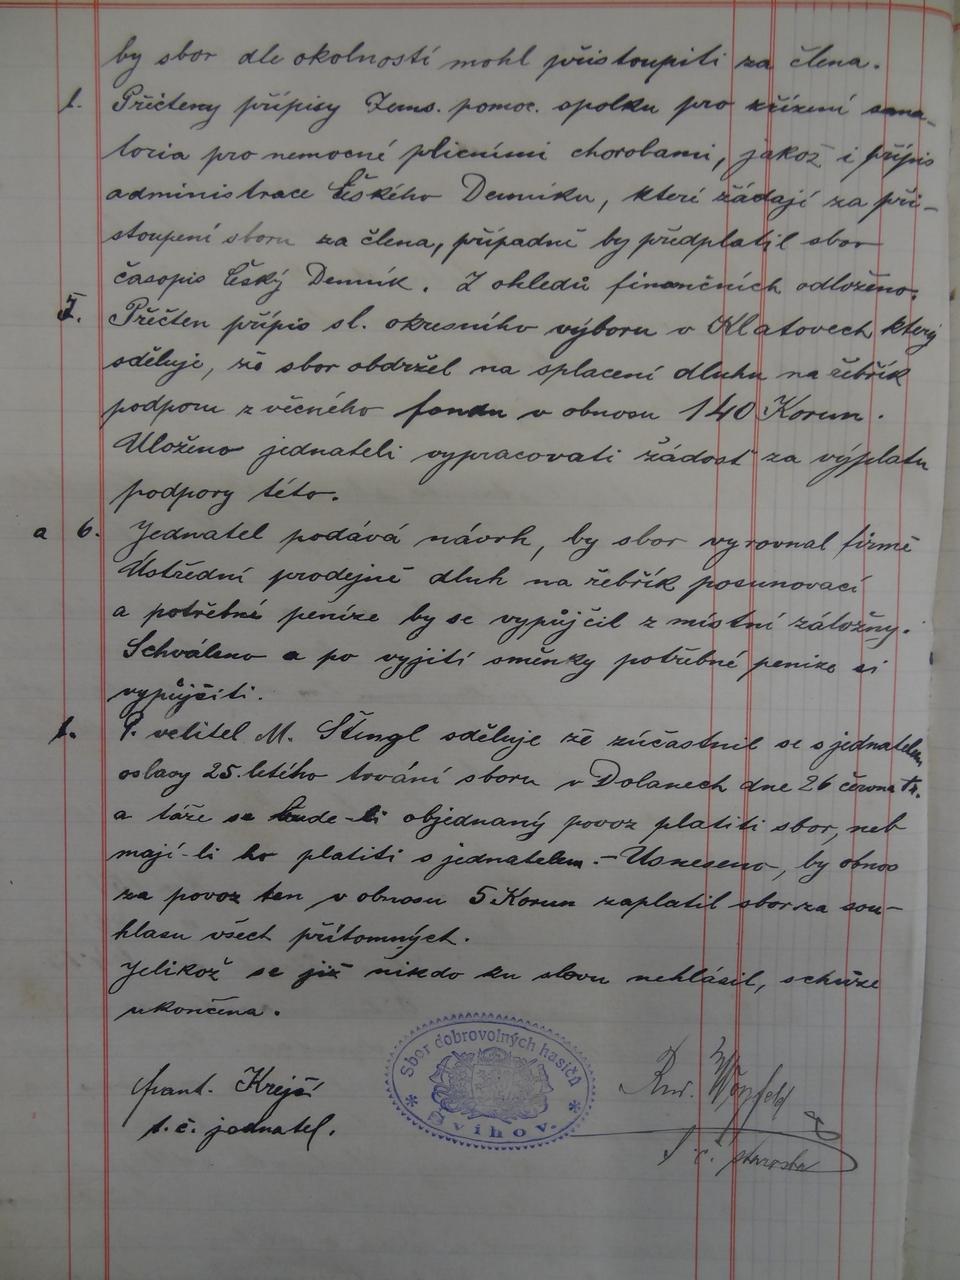 by sbor dle okolností mohl přistoupiti za člena.
1. Přečteny přípisy Zems. pomoc. spolku pro zřízení sana-
toria pro nemocné plicními chorobami, jakož i přípis
administrace Českého Denníku, kteří žádají za při-
stoupení sboru za člena, případně by předplatil sbor
časopis Český Denník. Z ohledů finančních odloženo.
Přečten přípis sl. okresního výboru v Klatovech který
sděluje, že sbor obdržel na splacení dluhu na řebřík
podporu z věcného fondu v obnosu 140 Korun.
Uloženo jednateli vypracovati žádost za výplatu
podpory této.
a 6. Jednatel podává návrh, by sbor vyrovnal firmě
Ústřední prodejně dluh na řebřík posunovací
a potřebné peníze by se vypůjčil z místní záložny.
Schváleno a po vyjití směnky potřebné peníze si
vypůjčiti.
P. velitel M. Štengl sděluje že zúčastnil se s jednatelem
oslavy 25-letého trvání sboru v Dolanech dne 26 června t.r.
a táže se bude-li objednaný povoz platiti sbor, neb
mají-li ho platiti s jednatelem. - Usneseno, by obnos
za povoz ten v obnosu 5 Korun zaplatil sbor za sou-
hlasu všech přítomných.
Jelikož se již nikdo ku slovu nehlásil, schůze
ukončena.
Sbor dobrovolných hasičů
* Švihov. *
Frant. Krejčí
t. č. jednatel.
t. č. starosta